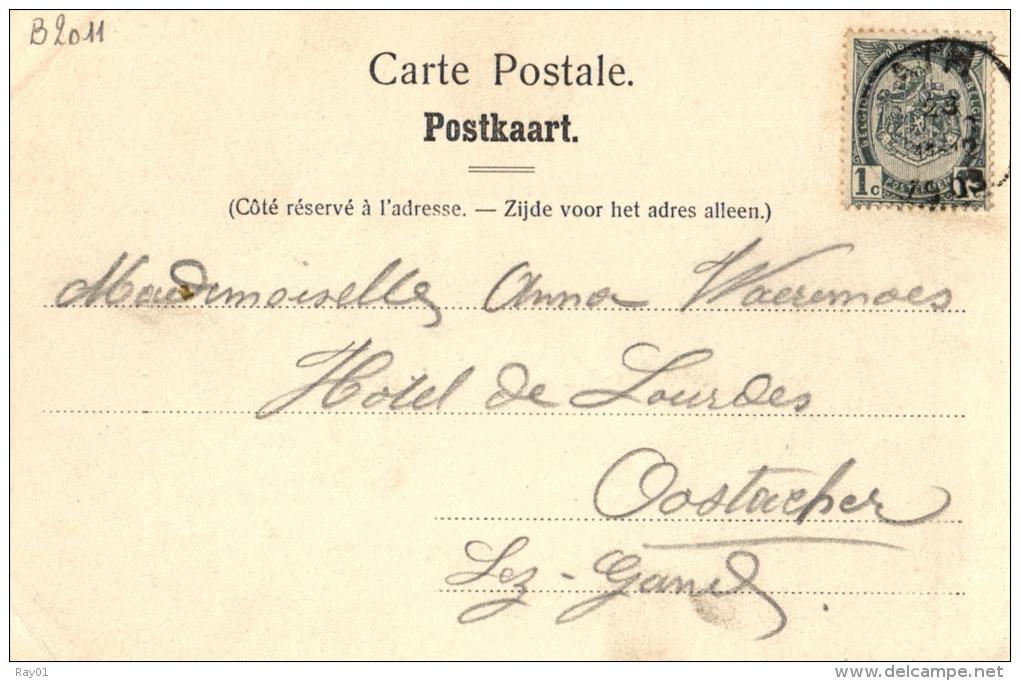 B2011
Carte Postale.
Postkaart.
(Côté réservé à l'adresse. — Zijde voor het adres alleen.)
1c
23
Mademoiselle Anna Waeremaes
Hôtel de Lourdes
Oostacher
Lez-Gand
Ray01
delcampe.net